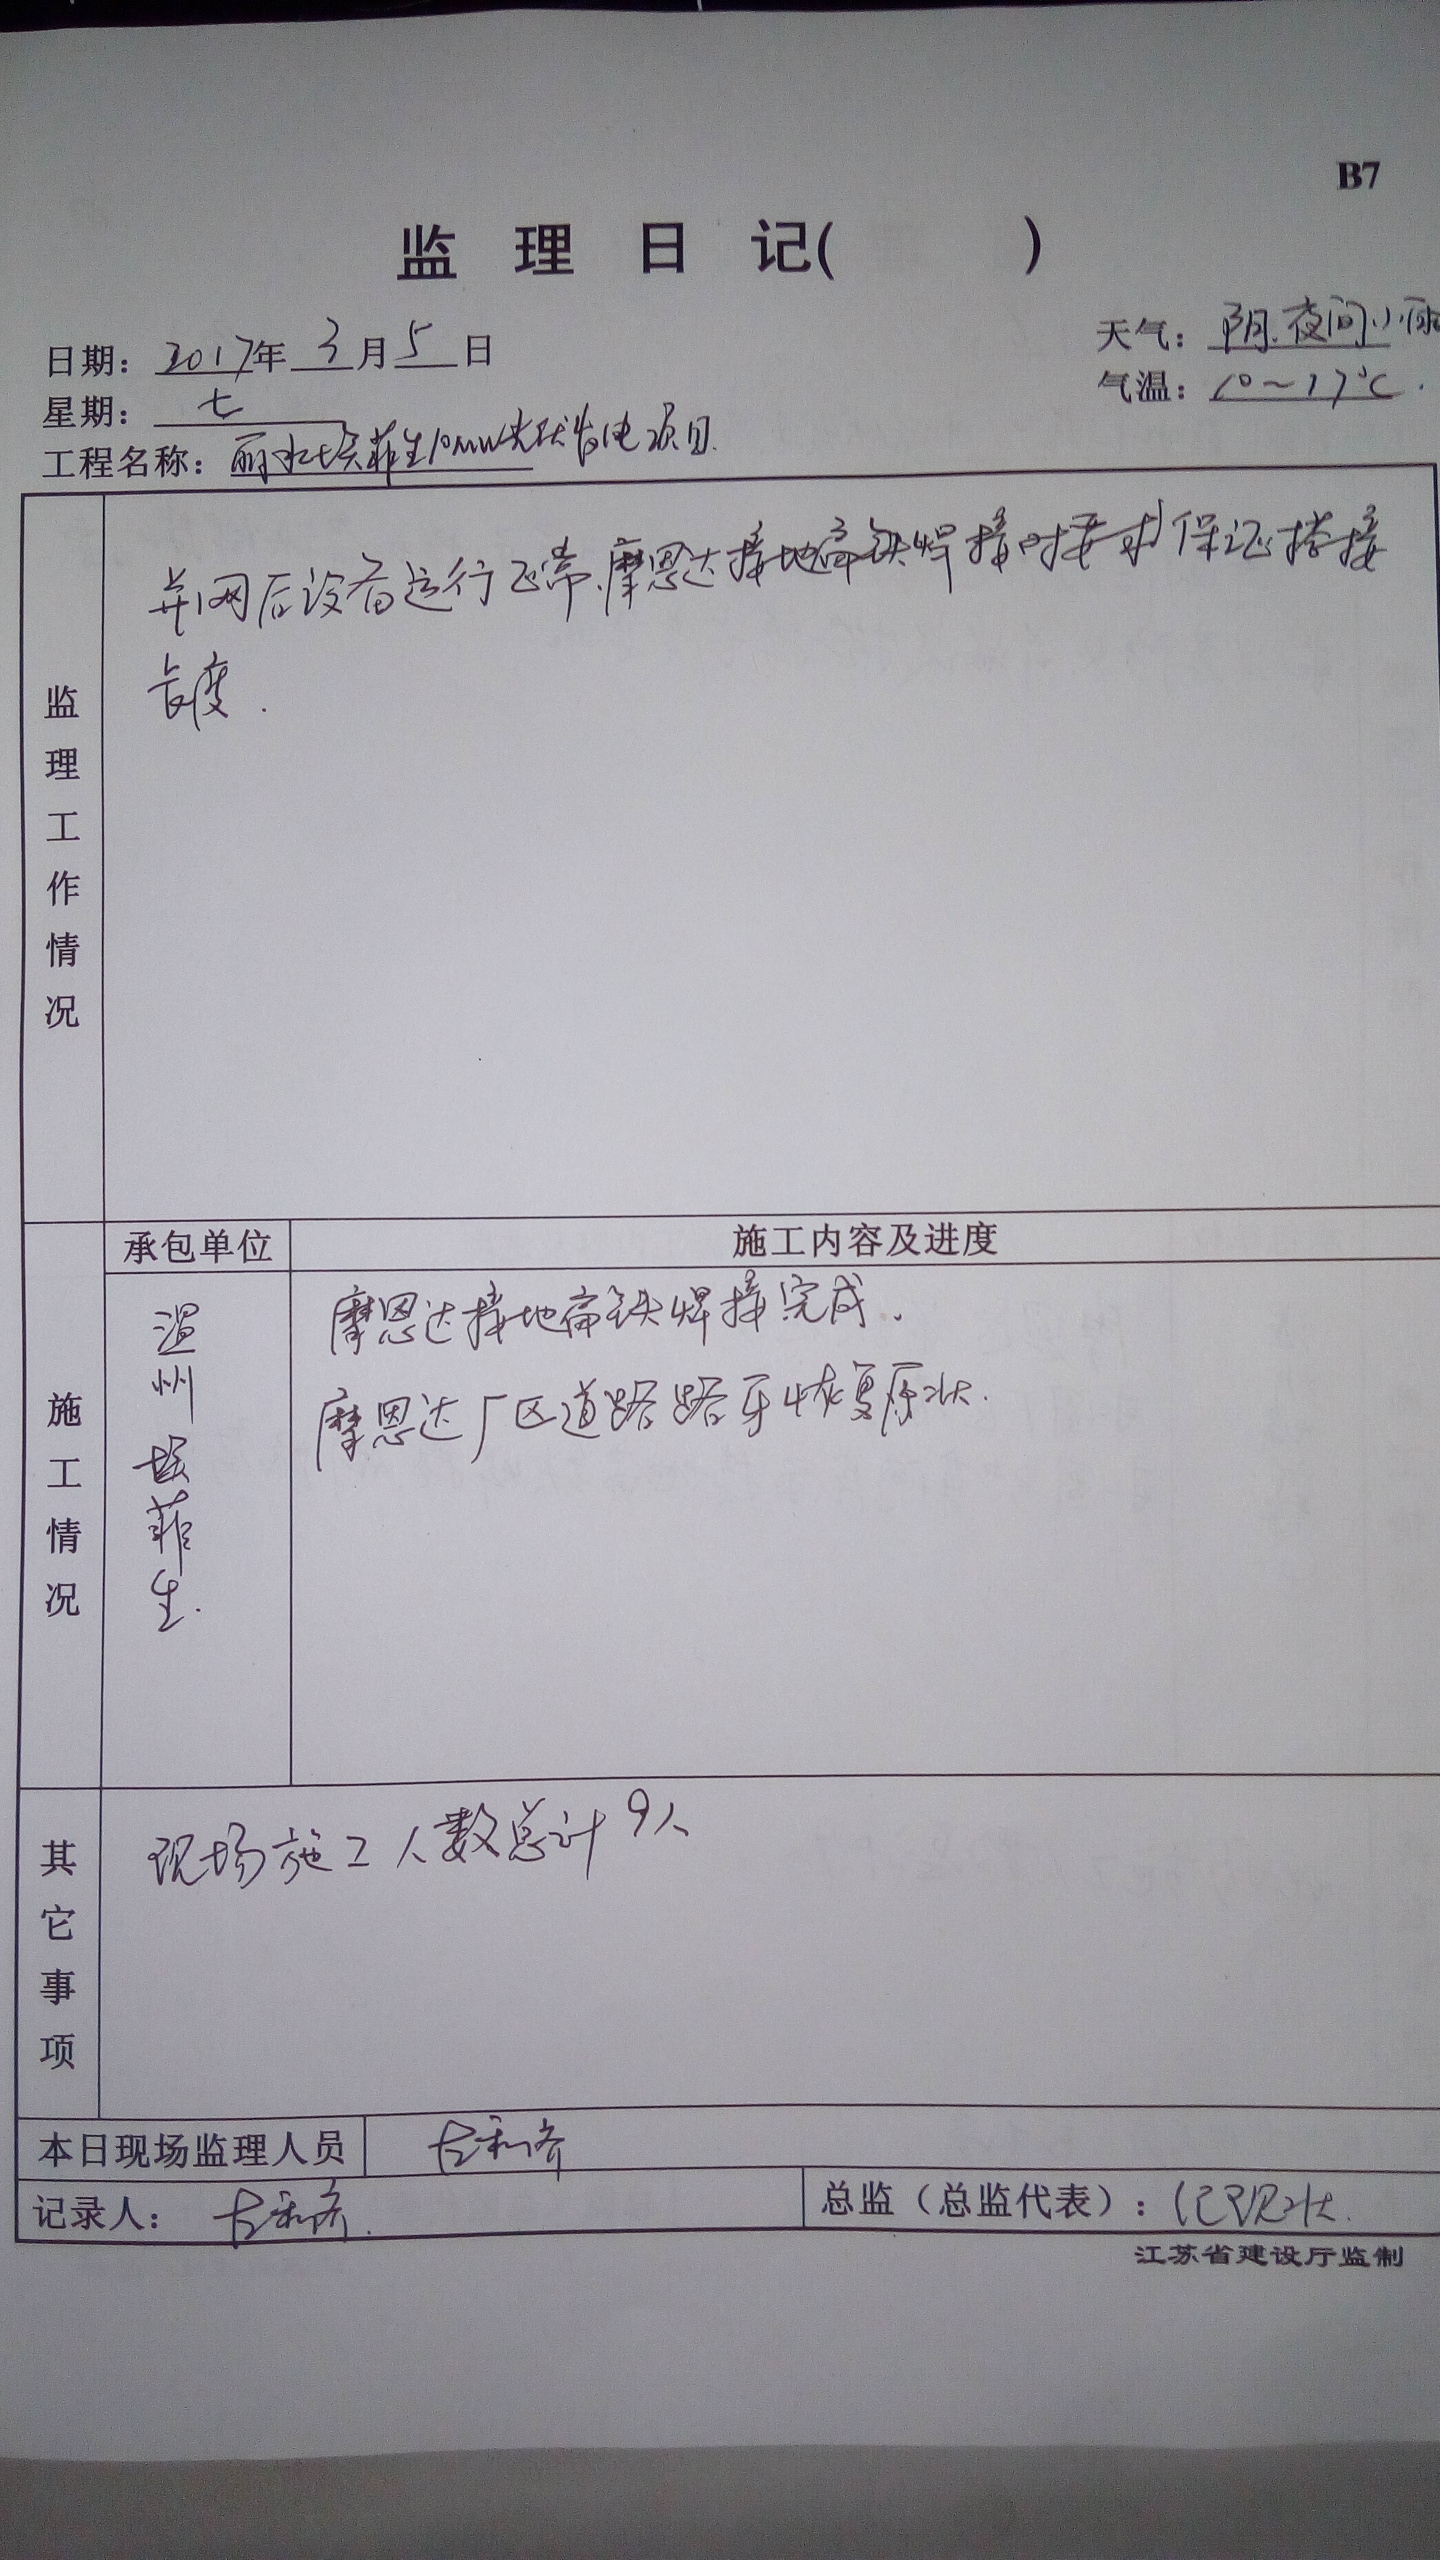 B7
监理日记( )
日期: 2017年3月5日
天气: 阴.夜间小雨
星期: 七
气温: 10~17℃.
工程名称: 丽水埃菲生10MW光伏发电项目.
监理工作情况
并网后设备运行正常.摩恩达接地扁铁焊接时要求保证搭接
长度.
承包单位
施工内容及进度
施工情况
温州埃菲生.
摩恩达接地扁铁焊接完成.
摩恩达厂区道路路牙恢复原状.
其它事项
现场施工人数总计9人
本日现场监理人员
记录人:
总监（总监代表）:
江苏省建设厅监制